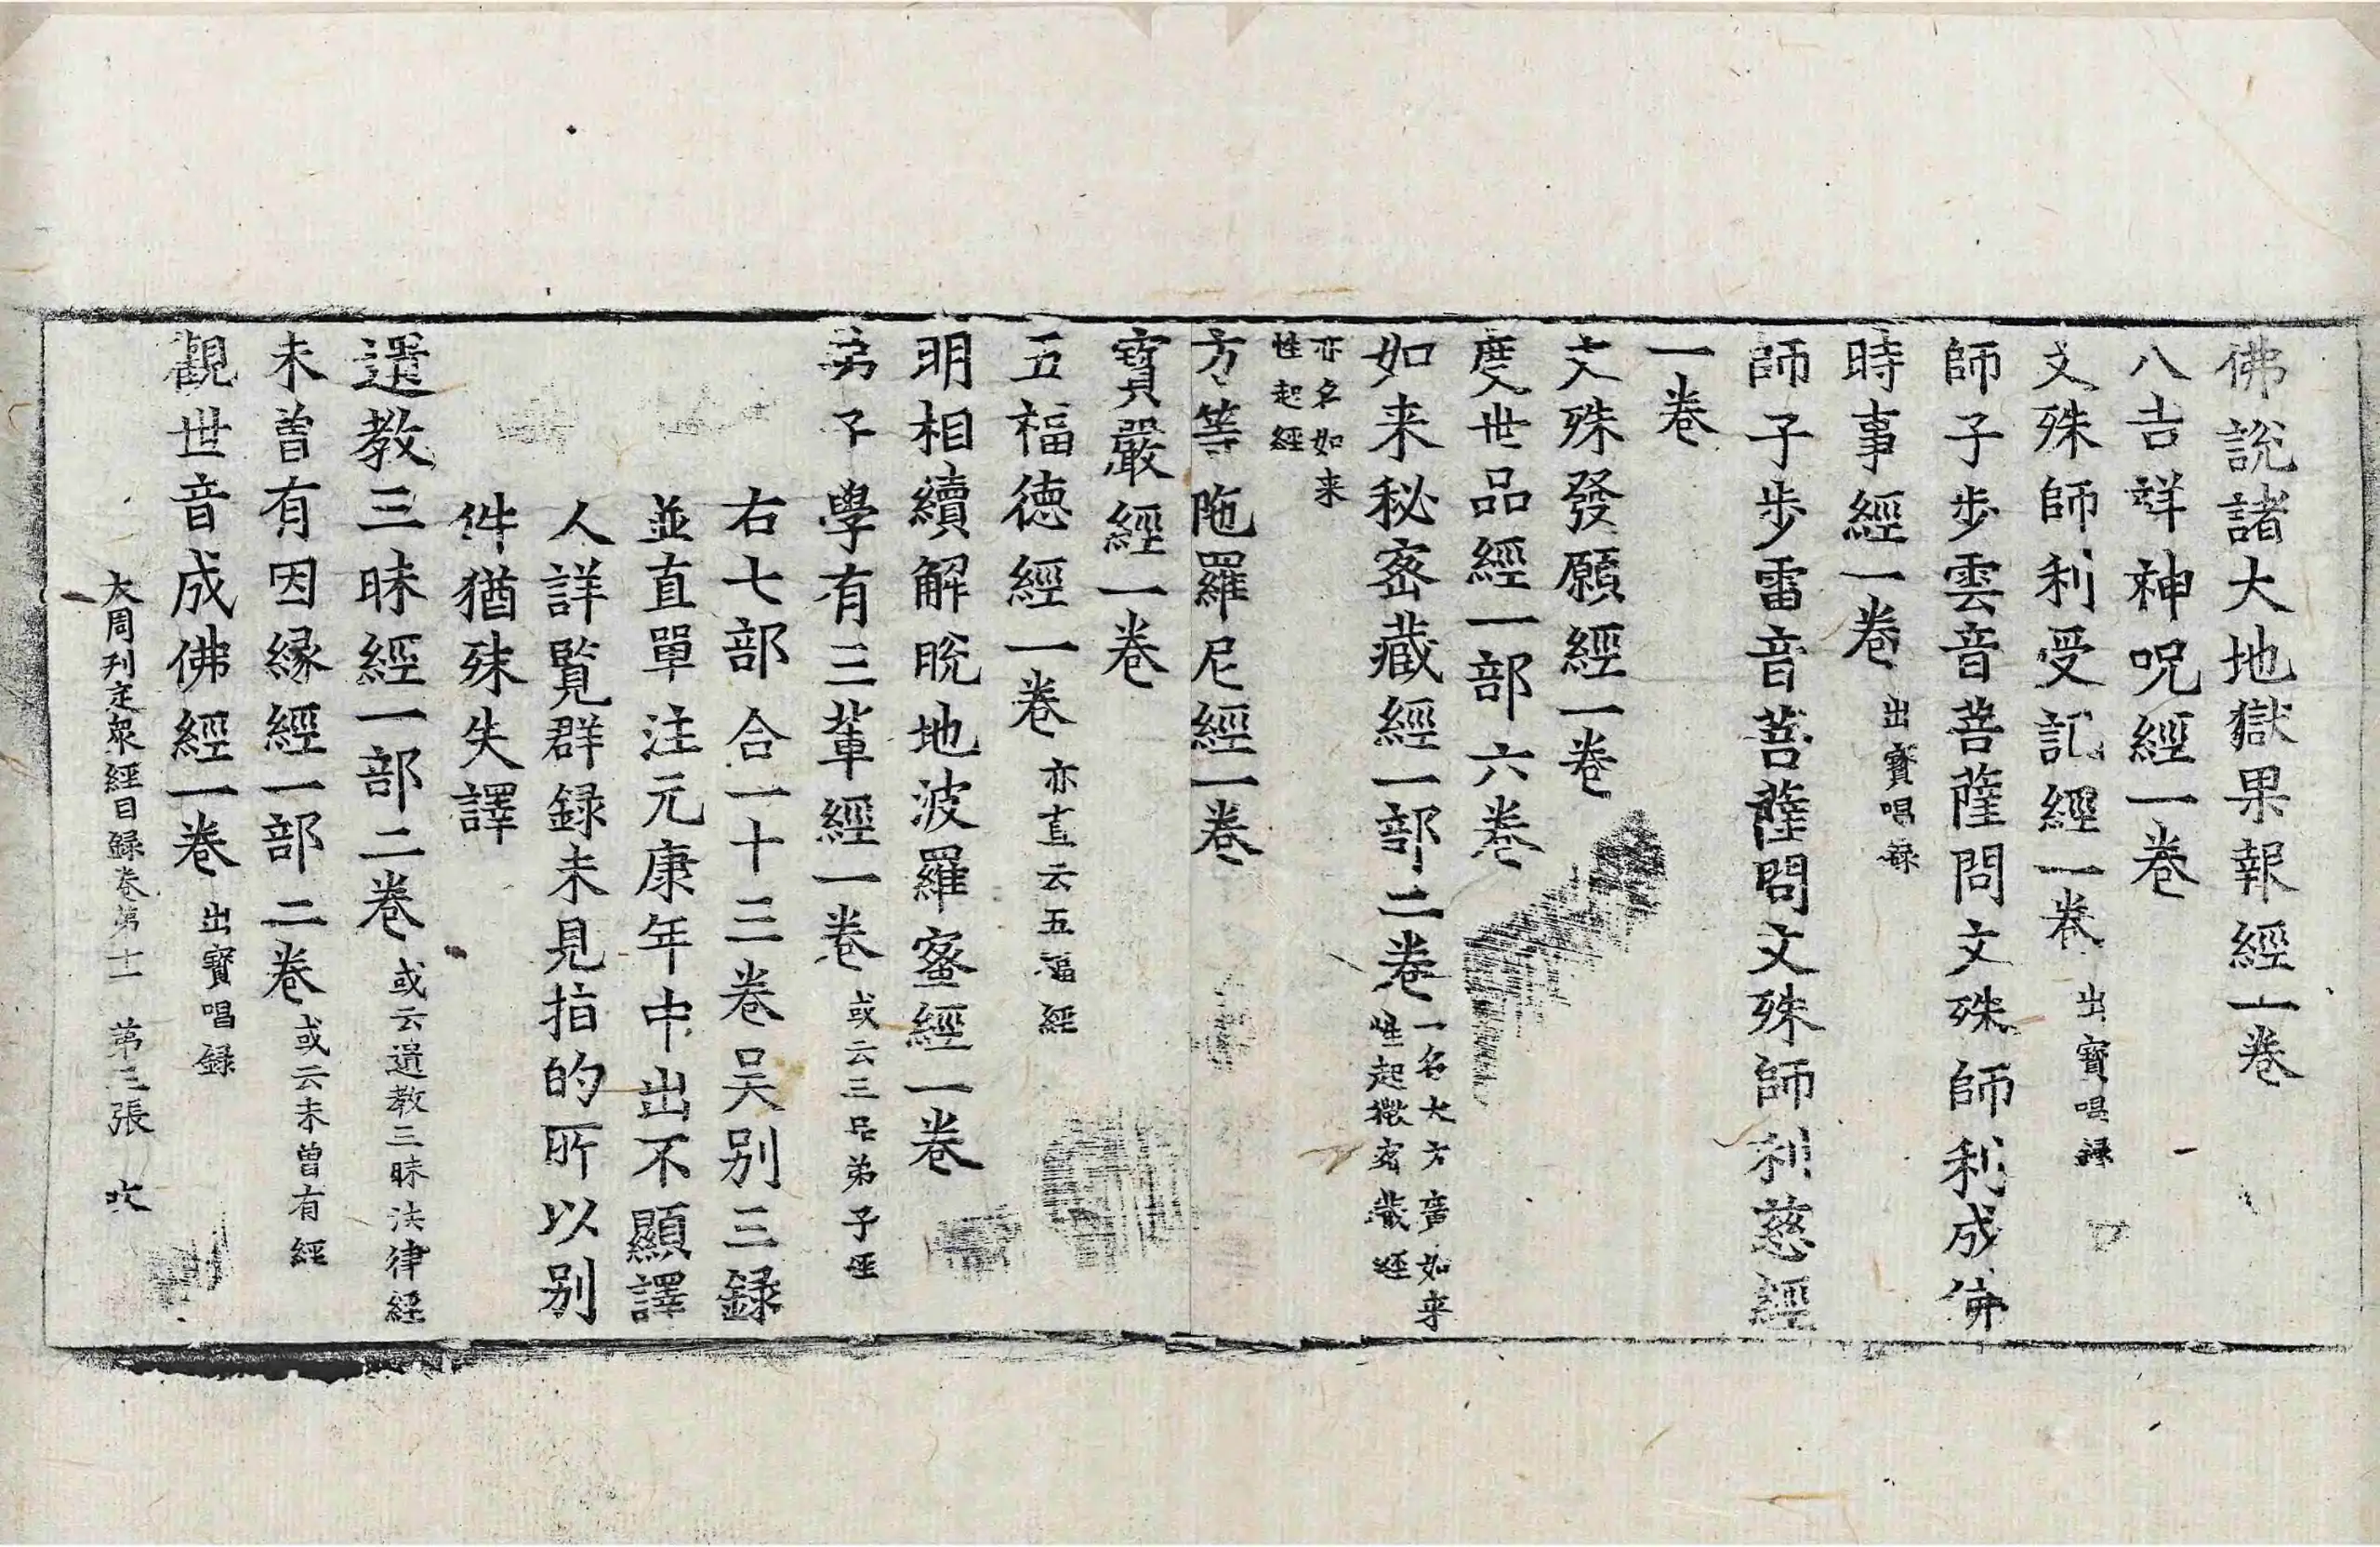 佛說諸大地獄果報經一卷
八吉祥神呪經一卷
文殊師利受記經一卷 出寶唱録
師子步雲音菩薩問文殊師利成佛
時事經一卷 出寶唱録
師子步雷音菩薩問文殊師利慈經
一卷
文殊發願經一卷
度世品經一部六卷
如来秘密藏經一部二卷 一名大方廣如来
性起微密藏經
亦名如来
性起經
方等陁羅尼經一卷
寶嚴經一卷
五福德經一卷 亦直云五福經
明相續解脫地波羅蜜經一卷
弟子學有三軰經一卷 或云三品弟子經
右七部合一十三卷吴别三録
並直單注元康年中出不顯譯
人詳覧群録未見指的所以别
件猶殊失譯
遺教三昧經一部二卷 或云遺教三昧法律經
未曾有因緣經一部二卷 或云未曾有經
觀世音成佛經一卷 出寶唱録
大周刊定衆經目録卷第十一 第三張